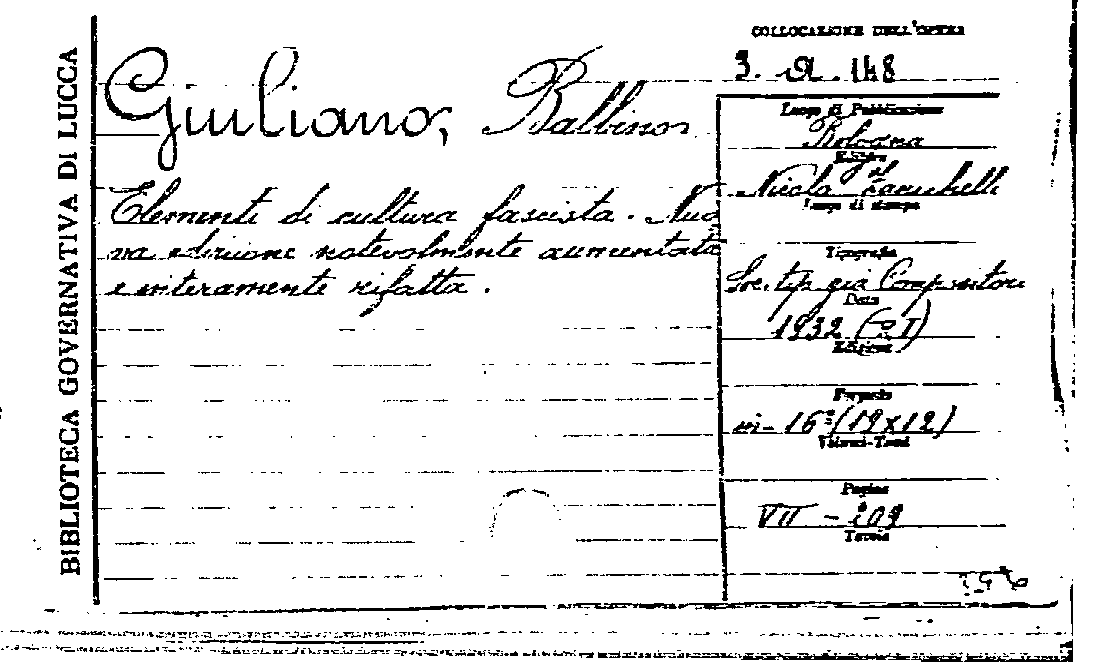 BIBLIOTECA GOVERNATIVA DI LUCCA
COLLOCAZIONE DELL'OPERA
3. A. 148
Giuliano, Balbino
Elementi di cultura fascista. Nuo
va edizione notevolmente aumentata
e interamente rifatta.
Luogo di Pubblicazione
Bologna
Editore
Nicola Zanichelli
Luogo di stampa
Tipografia
Soc. tip. già Compositori
Data
1932
Edizione
Formato
in-16º (19x12)
Volumi-Tomi
Pagine
VII - 209
Tavole